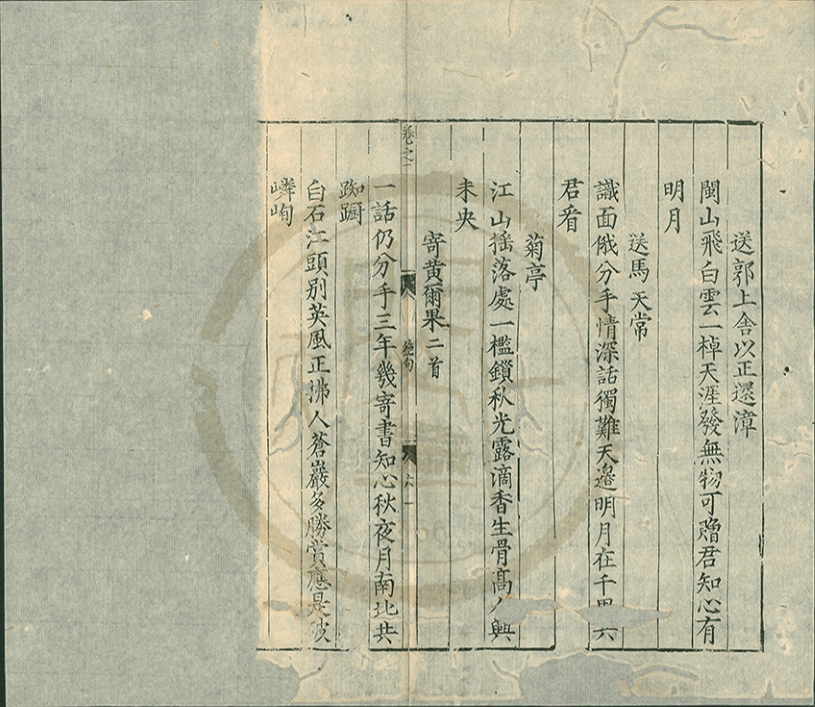 送郭上舍以正還漳
閩山飛白雲一棹天涯發無物可贈君知心有
明月
送馬天常
識面俄分手情深話獨難天邊明月在千里共
君看
菊亭
江山揺落處一檻鎖秋光露滴香生骨髙人興
未央
寄黄爾果二首
卷之
絶句
六
一話仍分手三年幾寄書知心秋夜月南北共
踟蹰
白石江頭别英風正拂人蒼巖多勝賞應是
嶙峋